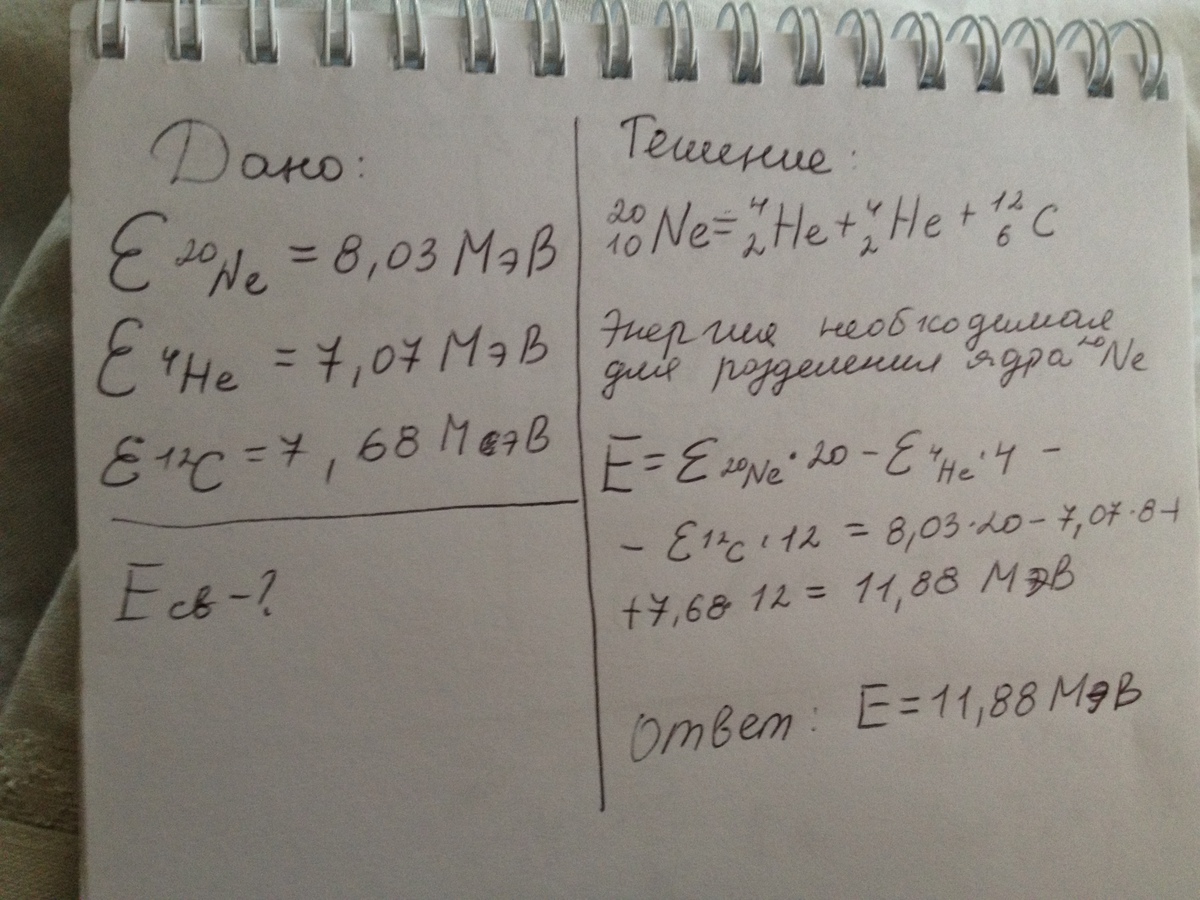 Дано:
ℰ ²⁰Ne = 8,03 МэВ
ℰ ⁴He = 7,07 МэВ
ℰ ¹²C = 7, 68 МэВ
Eсв - ?
Решение:
²⁰₁₀Ne = ⁴₂He + ⁴₂He + ¹²₆C
Энергия необходимая
для разделения ядра ²⁰Ne
E = ℰ ²⁰Ne · 20 - ℰ ⁴He · 4 -
- ℰ ¹²C · 12 = 8,03 · 20 - 7,07 · 8 +
+ 7,68 · 12 = 11,88 МэВ
Ответ: E = 11,88 МэВ